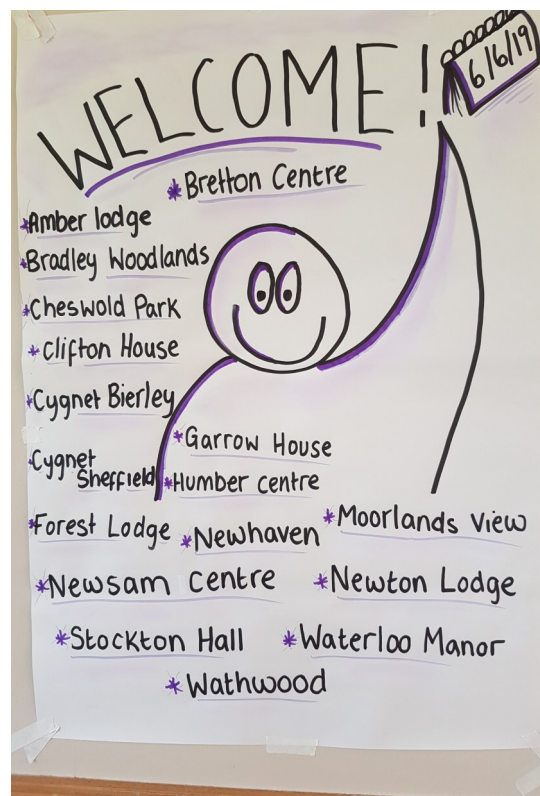 WELCOME!
6/6/19
* Bretton Centre
* Amber lodge
* Bradley Woodlands
* Cheswold Park
* Clifton House
* Cygnet Bierley
* Garrow House
* Cygnet
Sheffield
* Humber centre
* Forest Lodge
* Newhaven
* Moorlands View
* Newsam Centre
* Newton Lodge
* Stockton Hall
* Waterloo Manor
* Wathwood